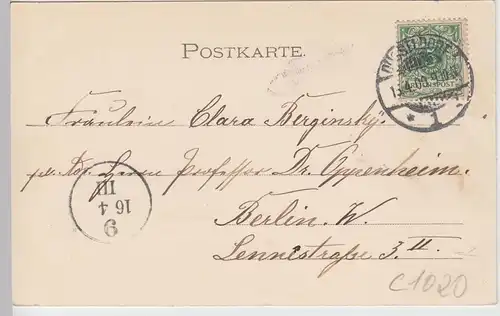 POSTKARTE.
DÜSSELDORF
1
Fräulein Clara Berginsky
per Adr. Herrn Professor Dr. Oppenheim.
Berlin. W.
Lennéstraße 3. II.
9
16 4
III
C1020